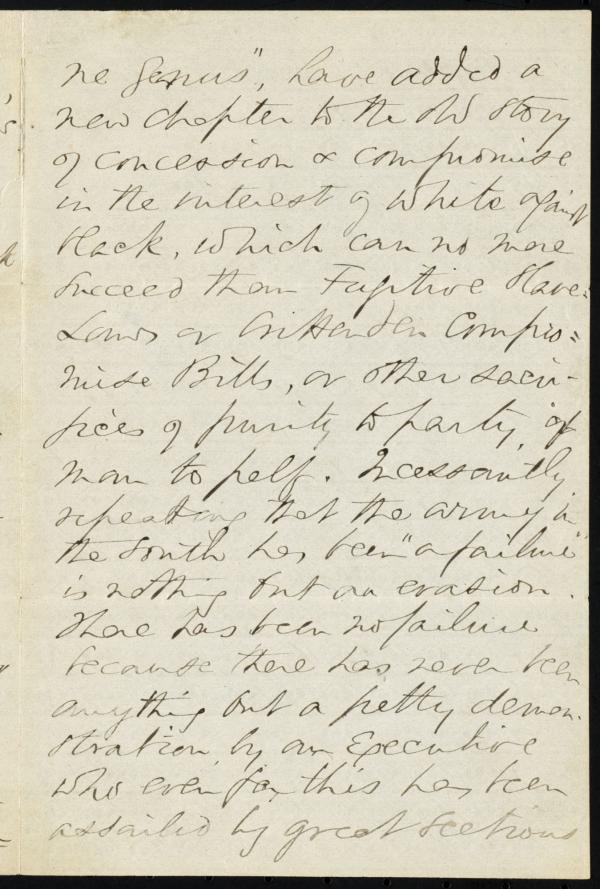 ne genus", have added a
new chapter to the old story
of concession & compromise
in the interest of White against
black, which can no more
succeed than Fugitive Slave=
Laws or Crittenden Compro=
mise Bills, or other sacri-
fices of purity to party, of
man to pelf. Incessantly
repeating that the army in
the South has been "a failure"
is nothing but an evasion.
There has been no failure
because there has never been
anything but a petty demon-
stration by an Executive
who even for this has been
assailed by great sections